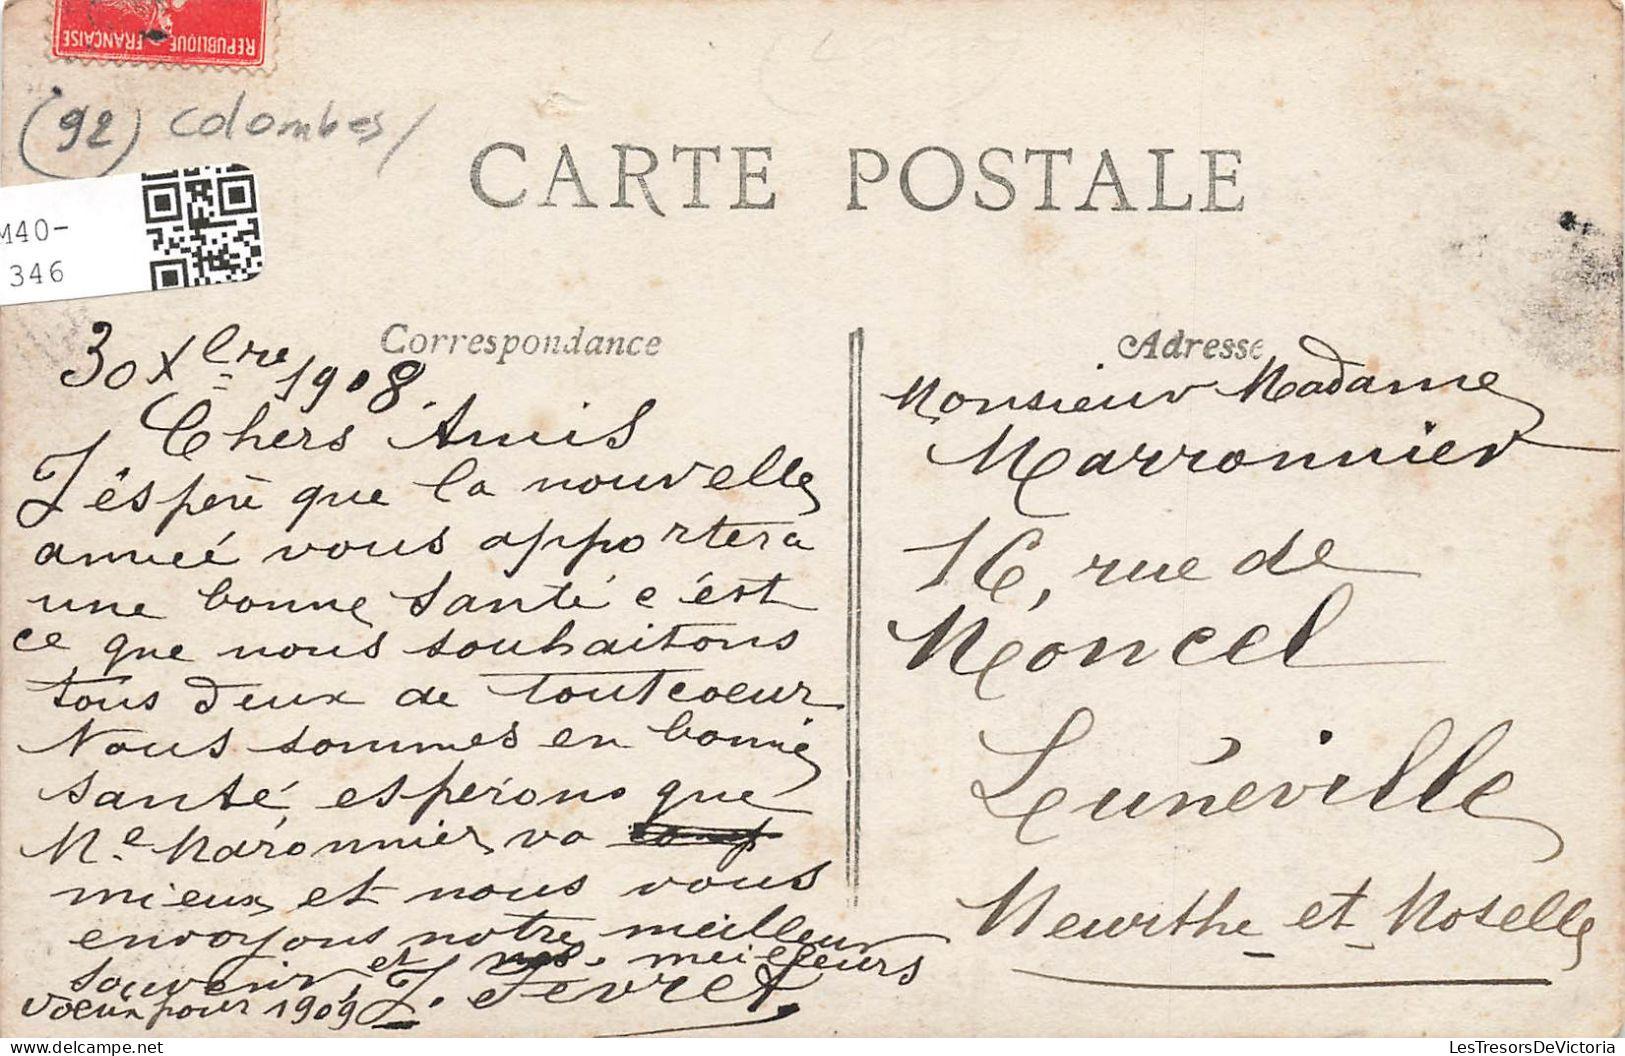 REPUBLIQUE FRANÇAISE
(92) Colombes/
M40-
346
CARTE POSTALE
Correspondance
Adresse
30 Xbre 1908
Chers Amis
J'éspère que la nouvelle
année vous apportera
une bonne santé c'est
ce que nous souhaitons
tous deux de toutcoeur
Nous sommes en bonne
santé, espérons que
Me Maronnier va
mieux et nous vous
envoyons notre meilleur
souvenir, et nos meilleurs
voeux pour 1909 J. Fevret
Monsieur Madame
Marronnier
16, rue de
Moncel
Lunéville
Meurthe et Moselle
LesTresorsDeVictoria